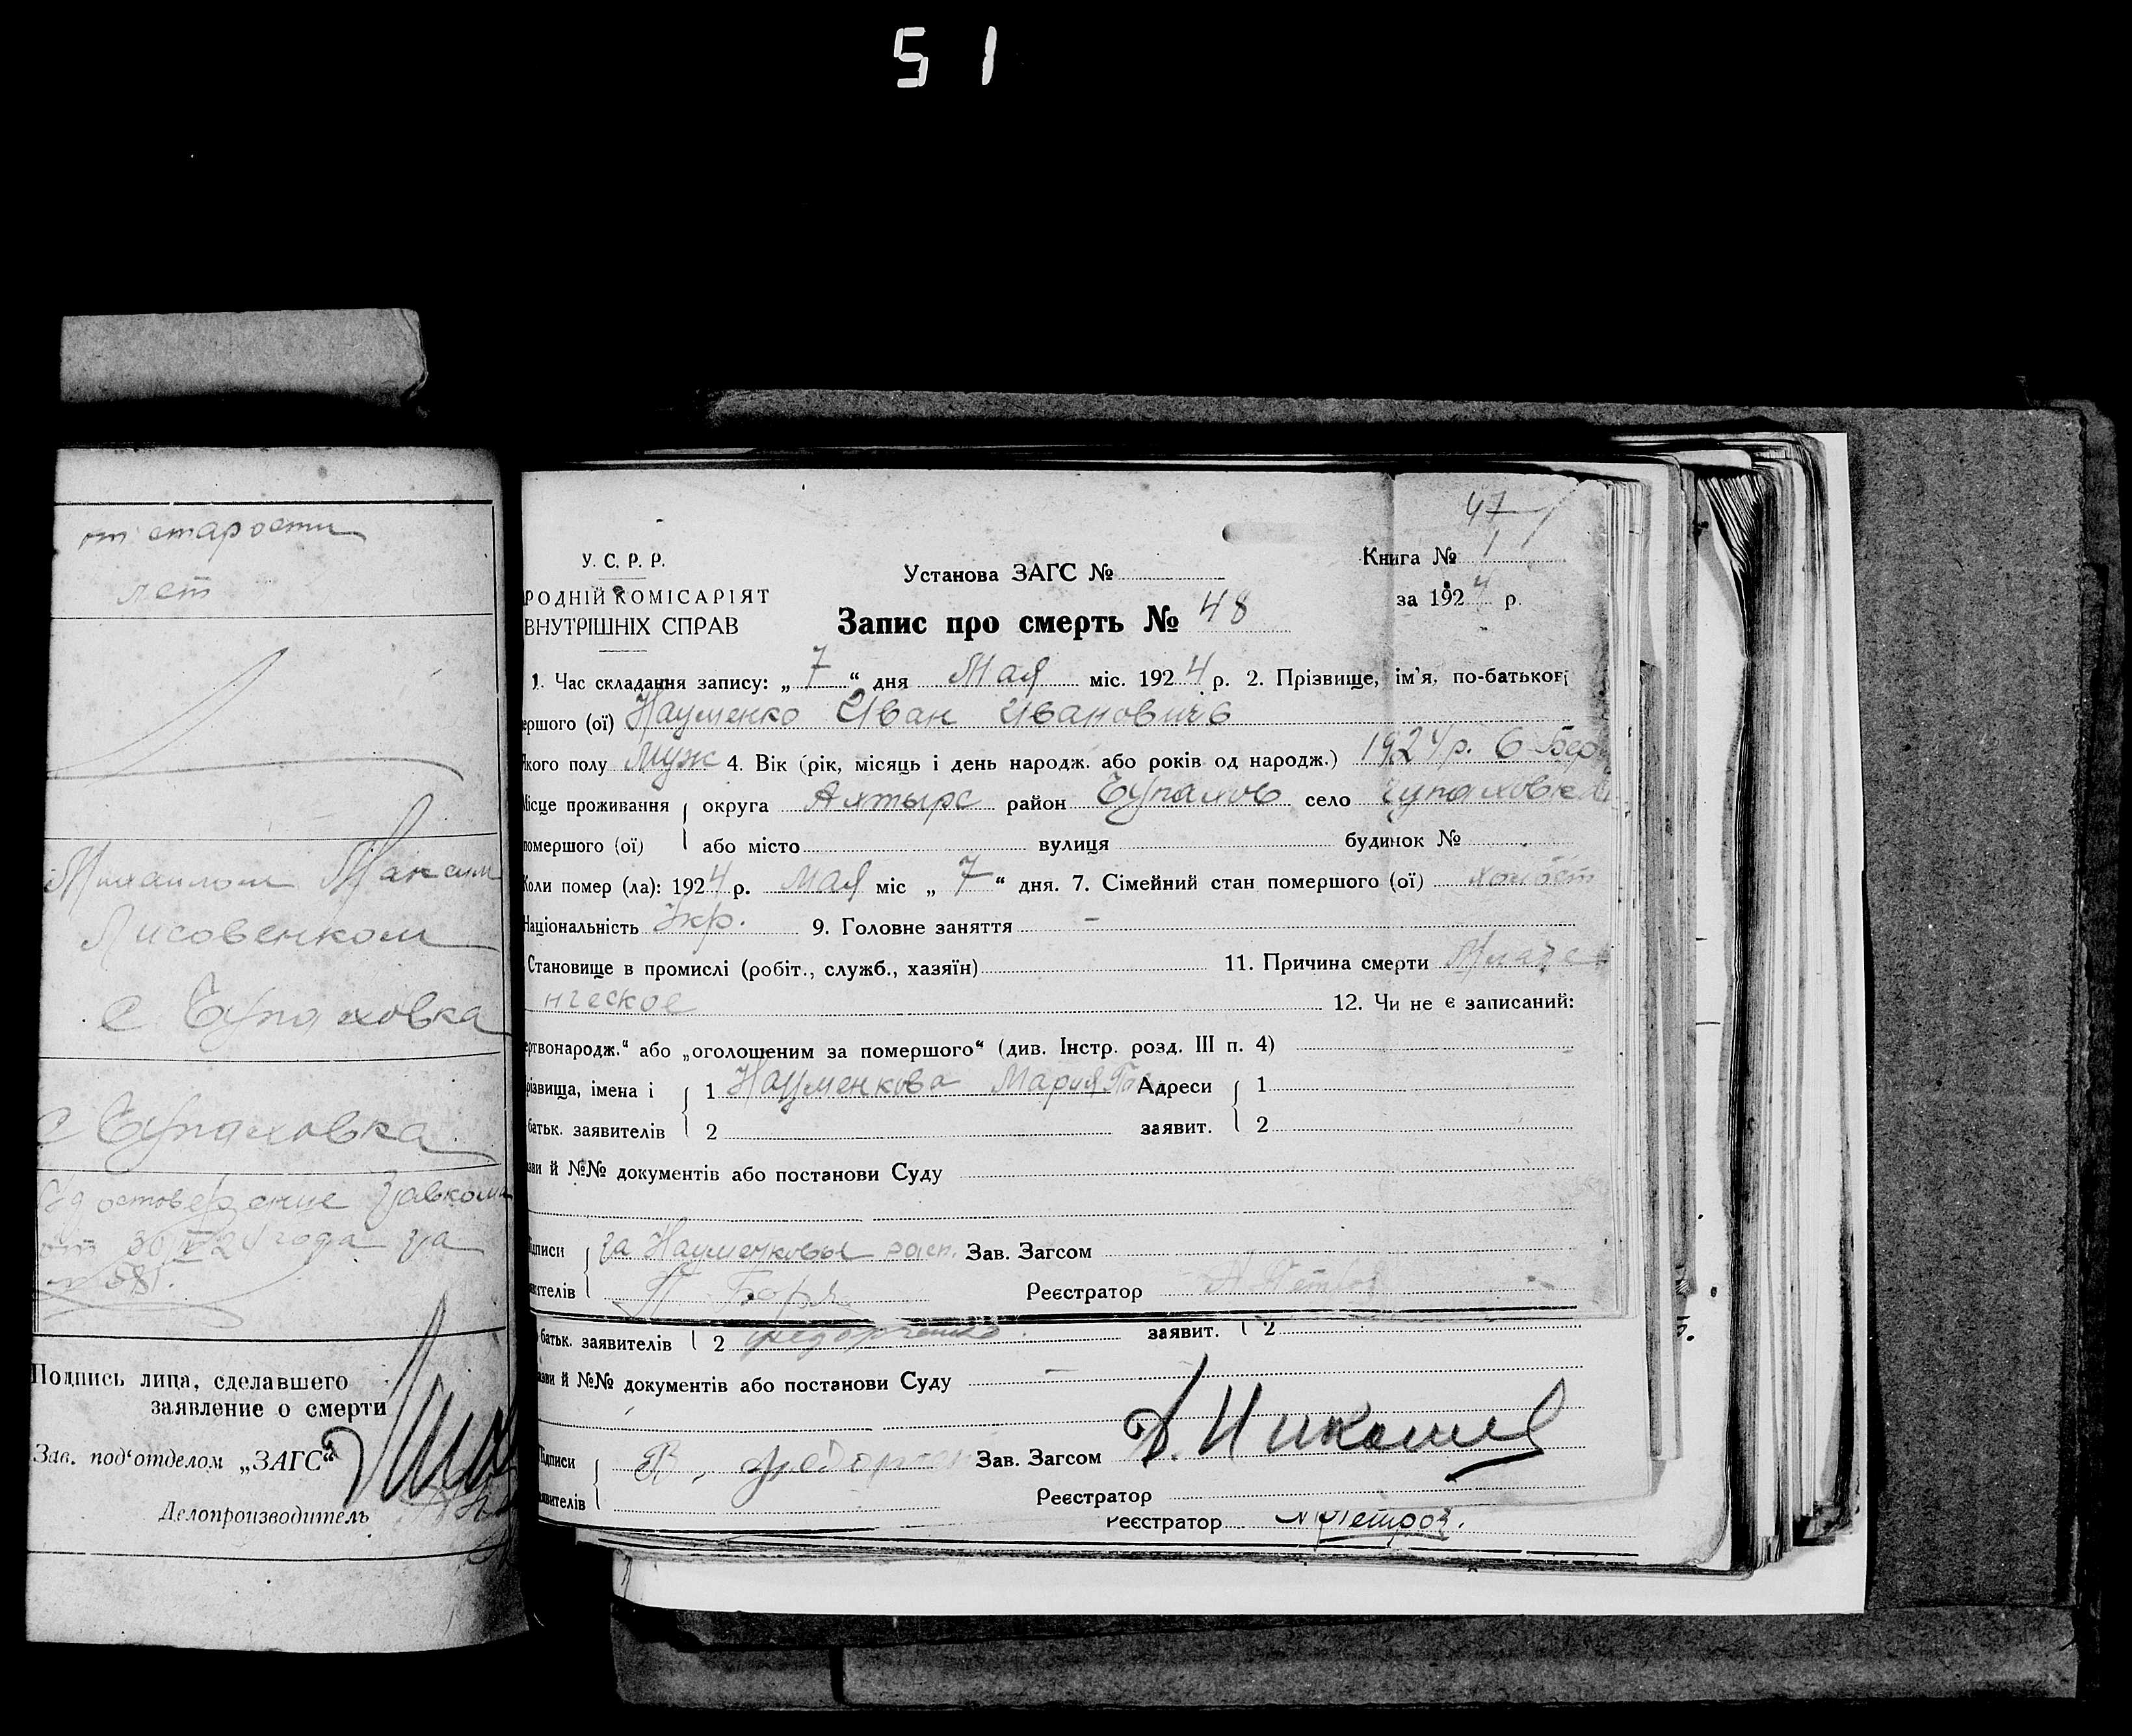 51
от старости
лет
Михаилом Максим
Лисовенком
с Чупаховка
с Чупаховка
Удостоверение Завкома
от 30/IV 24 года за
№ 581.
Подпись лица, сделавшего
заявление о смерти
Зав. под‘отделом „ЗАГС“
Делопроизводитель
47
У. С. Р. Р.
РОДНІЙ КОМІСАРІЯТ
ВНУТРІШНІХ СПРАВ
Установа ЗАГС №
Книга № 1
за 1924 р.
Запис про смерть № 48
1. Час складання запису: „7“ дня Мая міс. 1924 р. 2. Прізвище, ім’я, по-батькові
ершого (ої) Науменко Иван Ивановичъ
якого полу Муж 4. Вік (рік, місяць і день народж. або років од народж.) 1924 р. 6 Бер
Місце проживання округа Ахтырс район Чупахов село Чупаховка
померш́ого (ої) або місто вулиця будинок №
Коли помер (ла): 1924 р. Мая міс „7“ дня. 7. Сімейний стан помершого (ої) холост
Національність Укр. 9. Головне заняття -
Становище в промислі (робіт., служб., хазяїн) 11. Причина смерти Младе
нческое 12. Чи не є записаний:
ертвонародж.“ або „оголошеним за помершого“ (див. Інстр. розд. III п. 4)
різвища, імена і 1 Науменкова Мария Адреси 1
батьк. заявителів 2 заявит. 2
зви й №№ документів або постанови Суду
ідписи за Науменковы расп. Зав. Загсом
вителів Реєстратор Петров
батьк. заявителів 2 Федорченко заявит. 2
зви й №№ документів або постанови Суду —
Підписи Федорчен Зав. Загсом
аявителів Реєстратор
Реєстратор Петров.